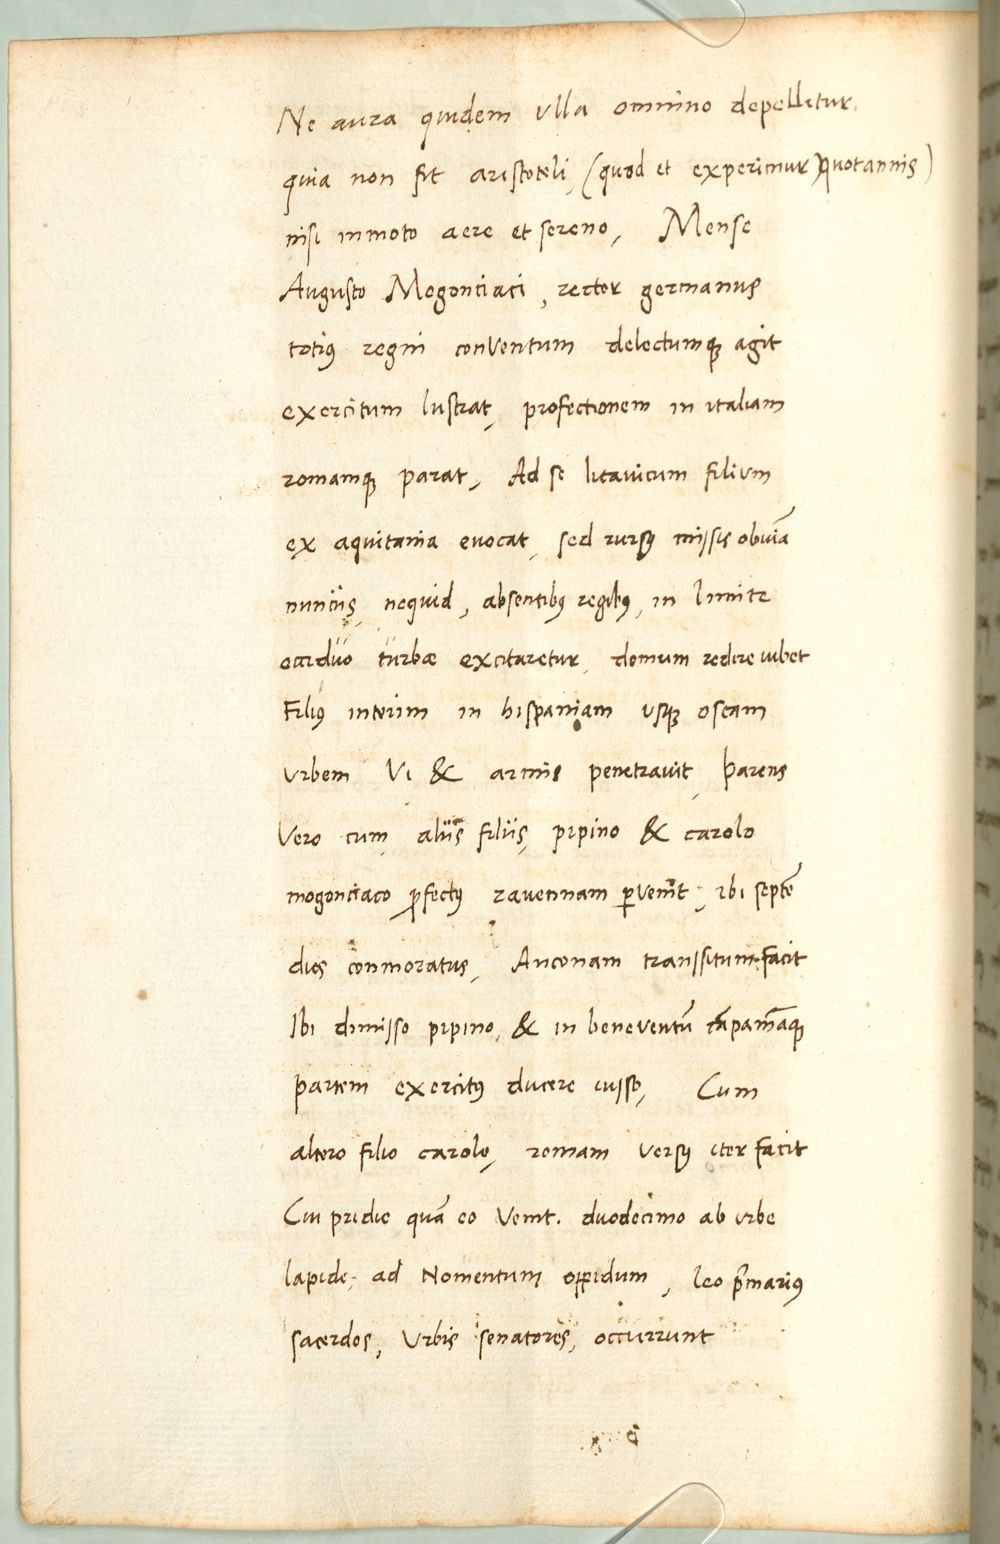 Ne aura quidem ulla omnino depellitur,
quia non fit aristoteli, (quod et experimur quotannis)
nisi inmoto aere et sereno, Mense
Augusto Mogontiaci, rector germanus
totiꝰ regni conventum delectumqꝫ agit
exercitum lustrat, profectionem in italiam
romamqꝫ parat, Ad se litavicum filium
ex aquitania evocat, sed rursꝰ missis obviā
nunciis, nequid, absentibꝰ regibꝰ, in limite
arduo turbæ excitaretur, domum redire iubet
Filiꝰ interim in hispaniam usqꝫ oscam
urbem Vi & armis penetravit, parens
Vero cum aliis filiis, pipino & carolo
mogontiaco ꝓfectꝰ ravennam ꝑvenit, ibi septē
dies conmoratus, Anconam transsitum facit
Ibi dimisso pipino, & in beneventū
partem exercitꝰ ducere iusso, Cum
altero filio carolo, romam versꝰ iter facit
Cui pridie quā eo venit. duodecimo ab urbe
lapide, ad Nomentum oppidum, leo p̄mariꝰ
sacerdos, Urbis senatores, occurrunt